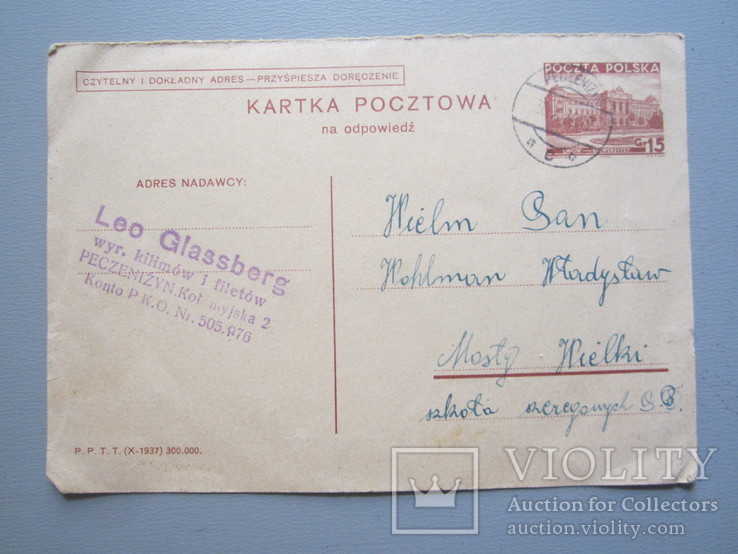 CZYTELNY I DOKŁADNY ADRES — PRZYŚPIESZA DORĘCZENIE
POCZTA POLSKA
KARTKA POCZTOWA
na odpowiedź
Gr 15
ADRES NADAWCY:
Leo Glassberg
wyr. kilimów i filetów
PECZENIŻYN. Koł myjska 2
Konto P K.O. Nr. 505.976
Wielm Pan
Wohlman Władysław
Mosty Wielki
szkoła szeregowych
P. P. T. T. (X-1937) 300.000.
VIOLITY
Auction for Collectors
auction.violity.com